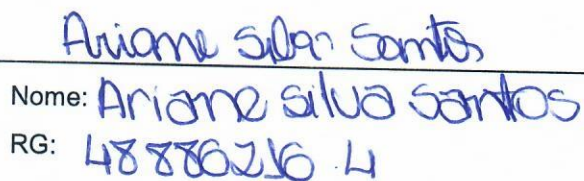 Ariane Silva Santos
Nome: Ariane silva santos
RG: 48886216 4